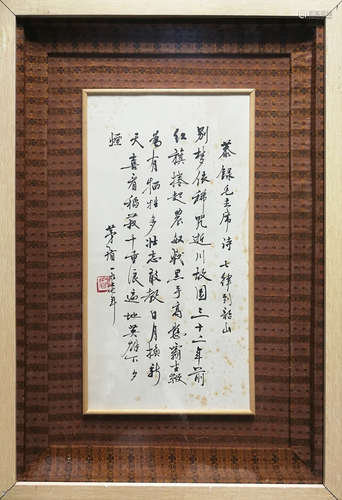 恭錄毛主席诗七律到韶山
别梦依稀咒逝川故園三十二年前
红旗捲起農奴戟黑手高懸霸主鞭
為有牺牲多壮志敢教日月换新
天喜看稻菽千重浪遍地英雄下夕
煙
茅盾